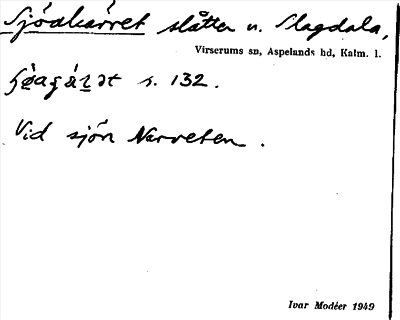 Sjöakärret slåtten u. Slagdala,
Virserums sn, Aspelands hd, Kalm. l.
s. 132.
Vid sjön Narveten.
Ivar Modéer 1949